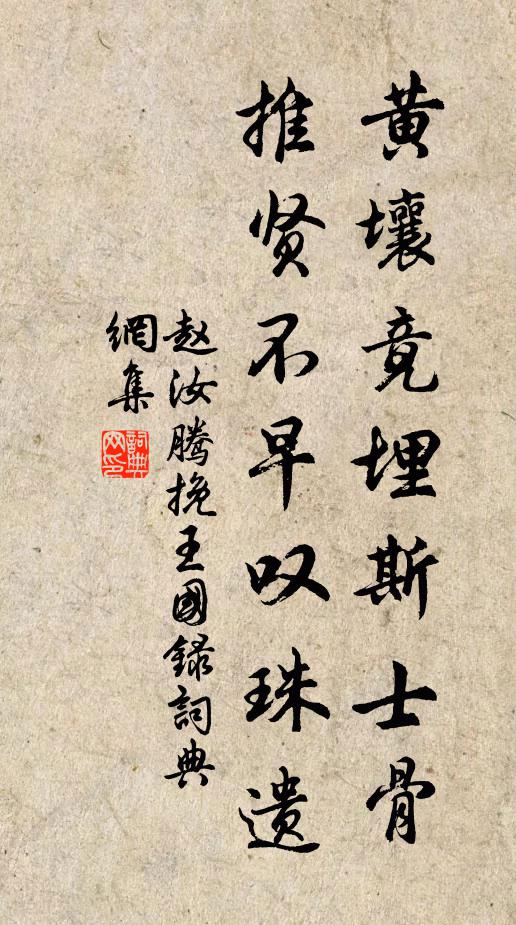 黄壤竟埋斯士骨
推贤不早叹珠遗
赵汝腾挽王國録詞典
網集
詞典
网印